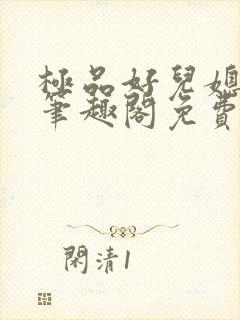 極品好兒媳
筆趣閣免費
閑清1